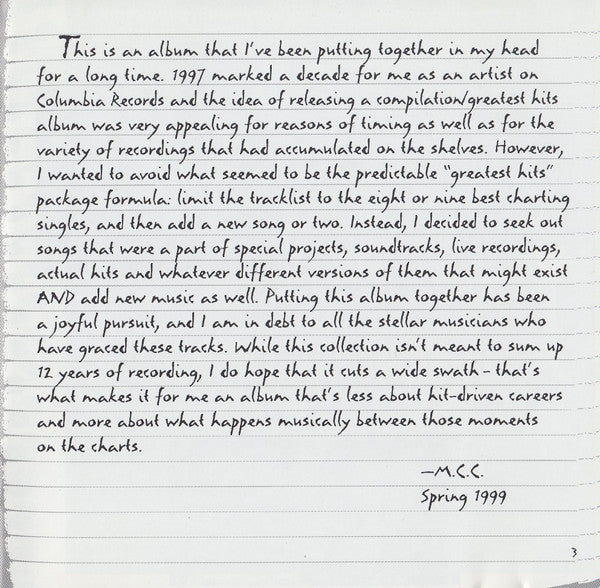 This is an album that I've been putting together in my head
for a long time. 1997 marked a decade for me as an artist on
Columbia Records and the idea of releasing a compilation/greatest hits
album was very appealing for reasons of timing as well as for the
variety of recordings that had accumulated on the shelves. However,
I wanted to avoid what seemed to be the predictable "greatest hits"
package formula: limit the tracklist to the eight or nine best charting
singles, and then add a new song or two. Instead, I decided to seek out
songs that were a part of special projects, soundtracks, live recordings,
actual hits and whatever different versions of them that might exist
AND add new music as well. Putting this album together has been
a joyful pursuit, and I am in debt to all the stellar musicians who
have graced these tracks. While this collection isn't meant to sum up
12 years of recording, I do hope that it cuts a wide swath - that's
what makes it for me an album that's less about hit-driven careers
and more about what happens musically between those moments
on the charts.
—M.C.C.
Spring 1999
3